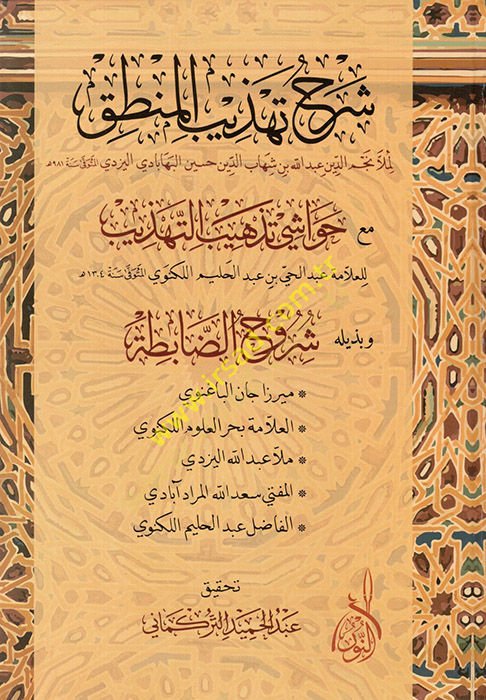 شرح تهذيب المنطق
لملا نجم الدين عبد الله بن شهاب الدين حسين البهابادي اليزدي المتوفى سنة ٩٨١هـ
مع حواشي تذهيب التهذيب
للعلامة عبد الحي بن عبد الحليم اللكنوي المتوفى سنة ١٣٠٤هـ
وبذيله شروح الضابطة
* ميرزا جان الباغنوي
* العلامة بحر العلوم اللكنوي
* ملا عبد الله اليزدي
* المفتي سعد الله المراد آبادي
* الفاضل عبد الحليم اللكنوي
تحقيق
عبد الحميد التركماني
النور